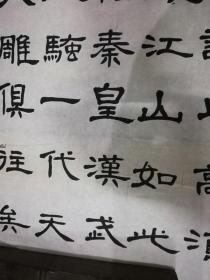 高須
江山如此
秦皇漢武
騷一代天
雕俱往矣